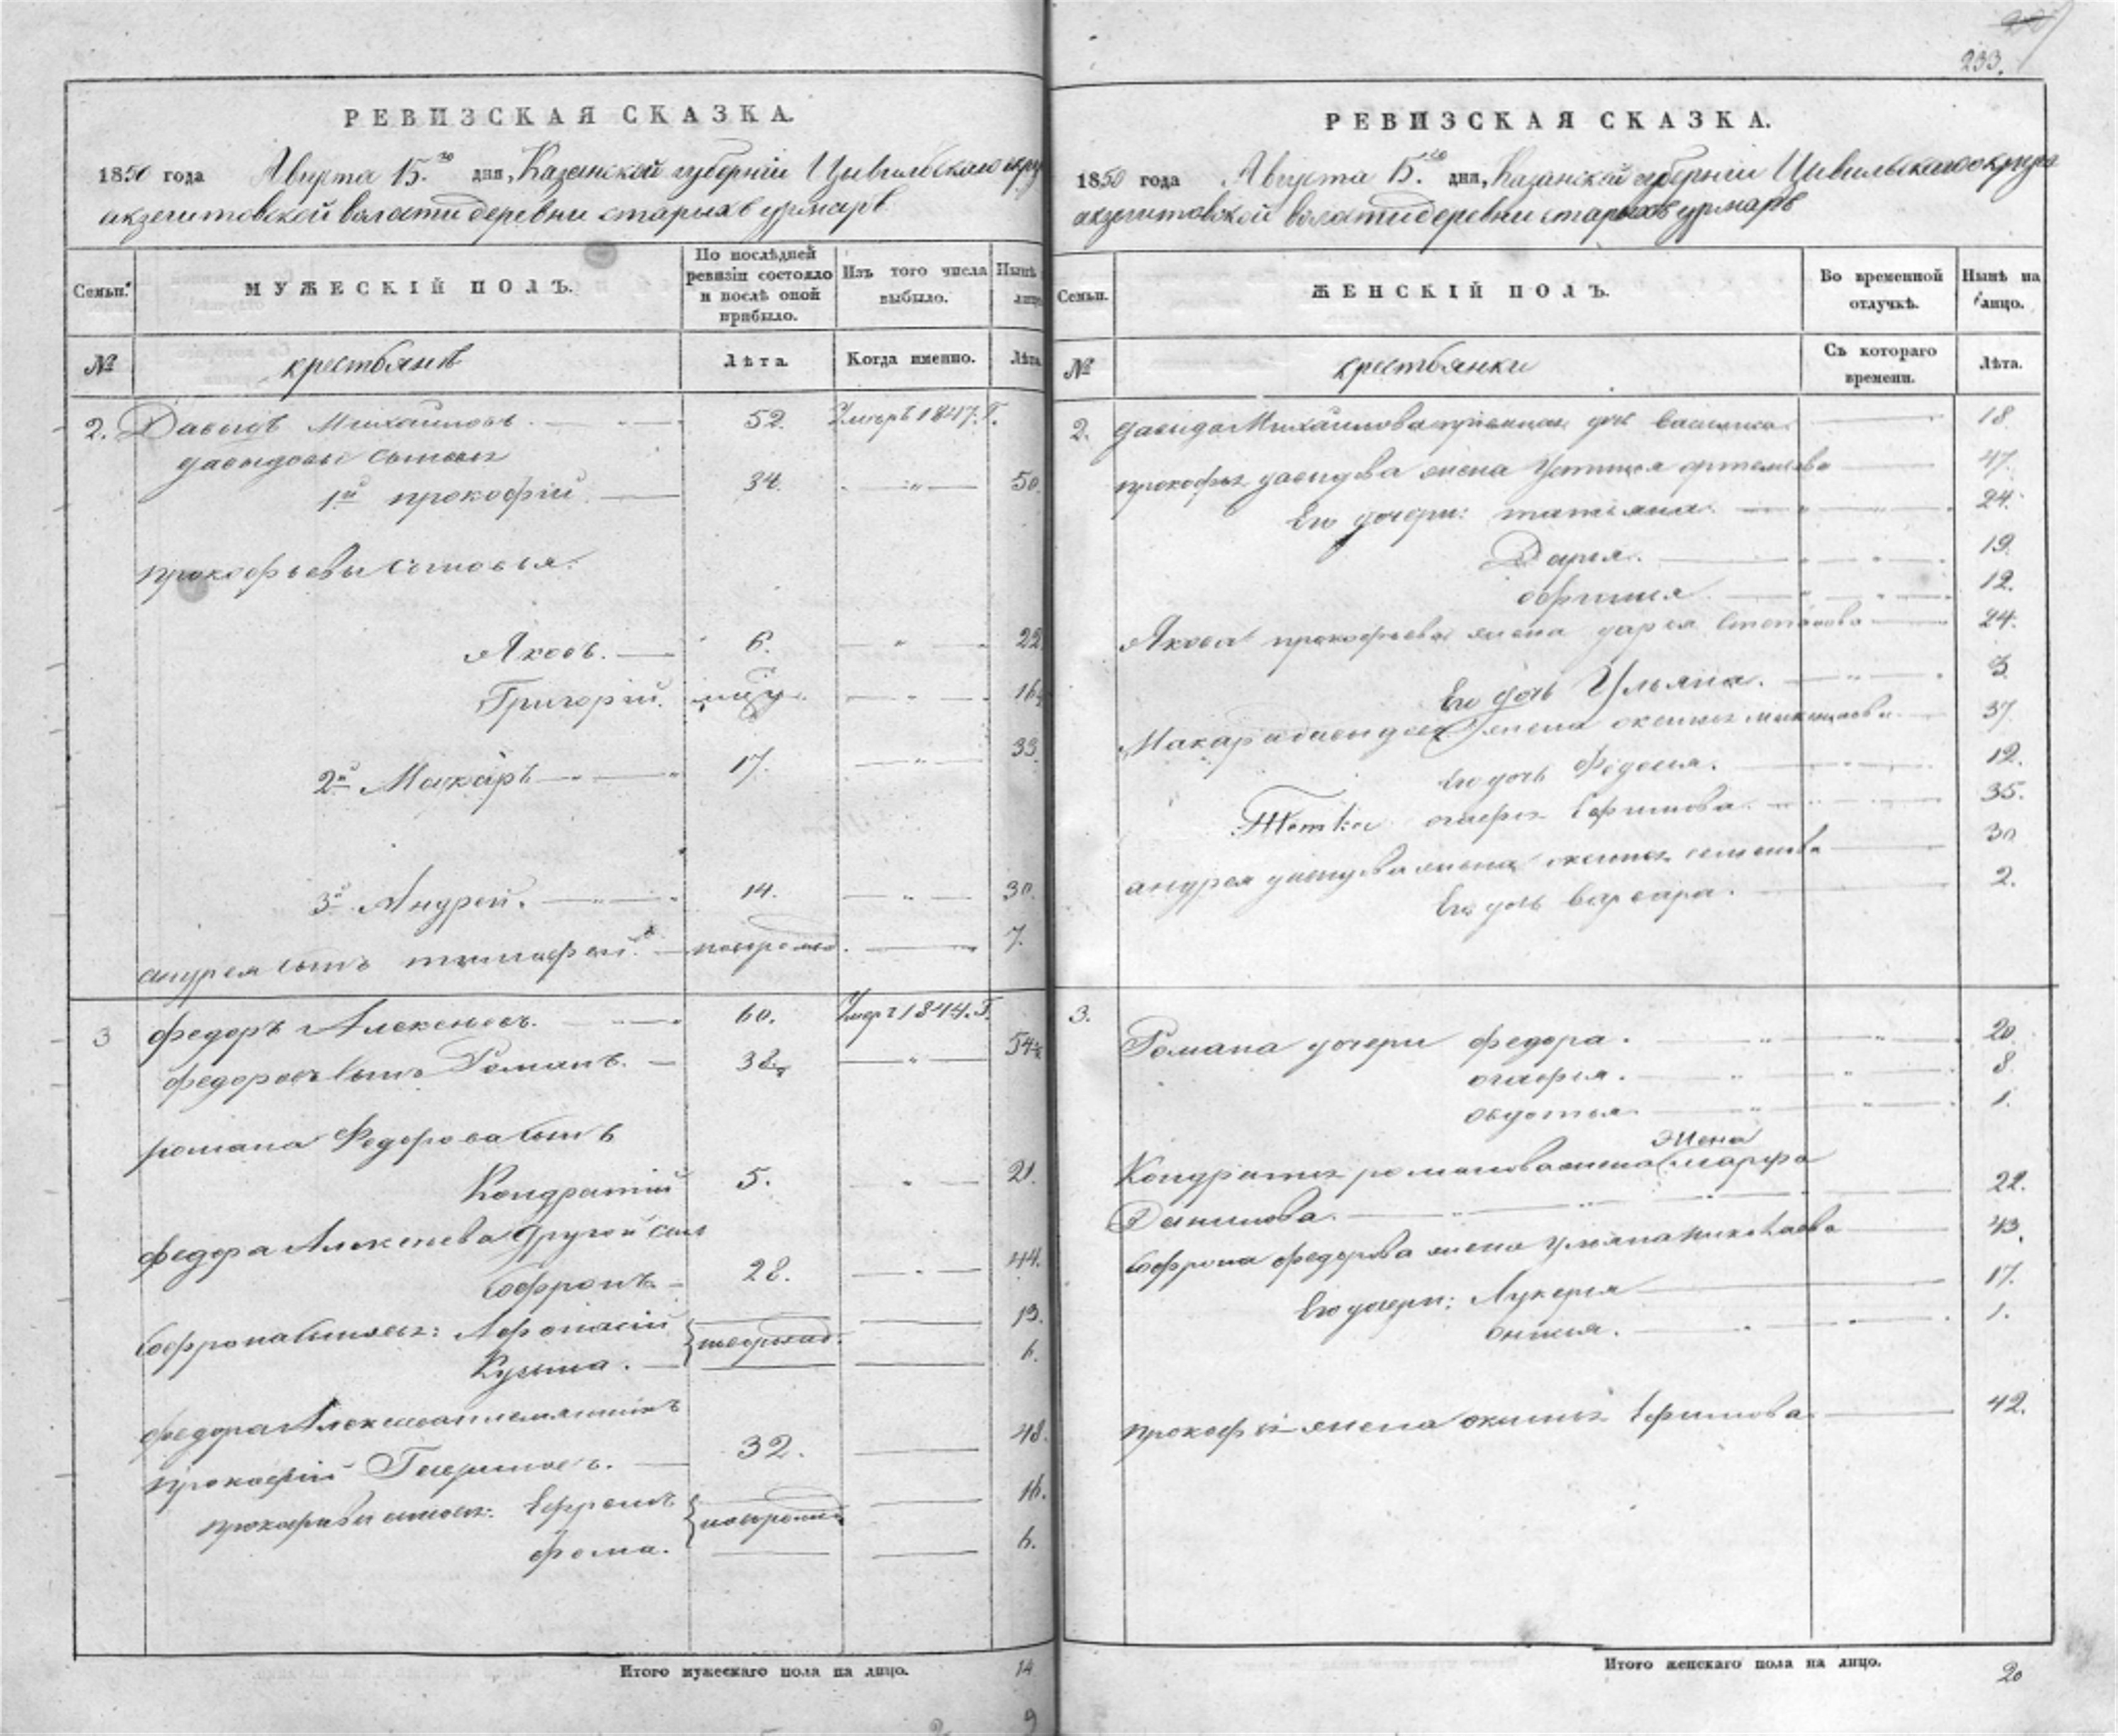 РЕВИЗСКАЯ СКАЗКА.
1850 года Августа 15.го дня, Казанской губернiи Цивильскаго окру
акзегитовской волости деревни старыхъ урмаръ
Семьи.
МУЖЕСКIЙ ПОЛЪ.
По послѣдней ревизiи состояло и послѣ оной прибыло.
Изъ того числа выбыло.
Нынѣ лицо
№
крестьянѣ
Лѣта.
Когда именно.
Лѣта.
2. Давыдъ Михайловъ. 52. Умеръ 1847. Г.
давыдовы сыновья
1й прокофiй 34. 50.
прокофьевы сыновья.
Яковъ. 6. 22
Григорiй. 16
2й Макаръ 17. 33
3й Андрей. 14. 30.
андрея сынъ тимофей. новорожд. 7.
3 федоръ Алексеевъ. 60. Умеръ 1844. Г.
федоровъ сынъ Романъ. 38. 54
романа Федорова сынъ
Кондратiй 5. 21.
федора Алексеева другой сынъ
Софронъ 28. 44.
Софрона сыновья: Афонасiй новорожд. 13.
Кузьма. 6.
федора Алексеева племянникъ
прокофiй Гавриловъ. 32. 48.
прокофьевы сыновья: Ефремъ новорожд. 16.
фома. 6.
Итого мужескаго пола на лицо. 14
9
233.
РЕВИЗСКАЯ СКАЗКА.
1850 года Августа 15.го дня, Казанской губернiи Цивильскаго округа
акзегитовской волости деревни старыхъ урмаръ
Семьи.
ЖЕНСКIЙ ПОЛЪ.
Во временной отлучкѣ.
Нынѣ на лицо.
№
крестьянки
Съ котораго времени.
Лѣта.
2. давида Михайлова дочь василиса 18
прокофья давидова жена Устинья артемьева 47.
Его дочери: татьяна. 24.
Дарья. 19.
офросинья 12.
Якова прокофьева жена дарья Степанова 24.
Его дочь Ульяна. 3.
Макара давидова жена оксинья 37
Его дочь Федосья. 12.
Тетка агафья Ефимова. 35.
андрея давидова жена оксинья семенова 30
Его дочь варвара. 2.
3. Романа дочери федора. 20.
агафья. 8.
овдотья. 1.
жена
Кондратья романова жена марфа
Данилова. 22.
Софрона федорова жена Ульяна николаева 43.
Его дочери: Лукерья 17.
онисья. 1.
прокофья жена оксинья Ефимова 42.
Итого женскаго пола на лицо. 20